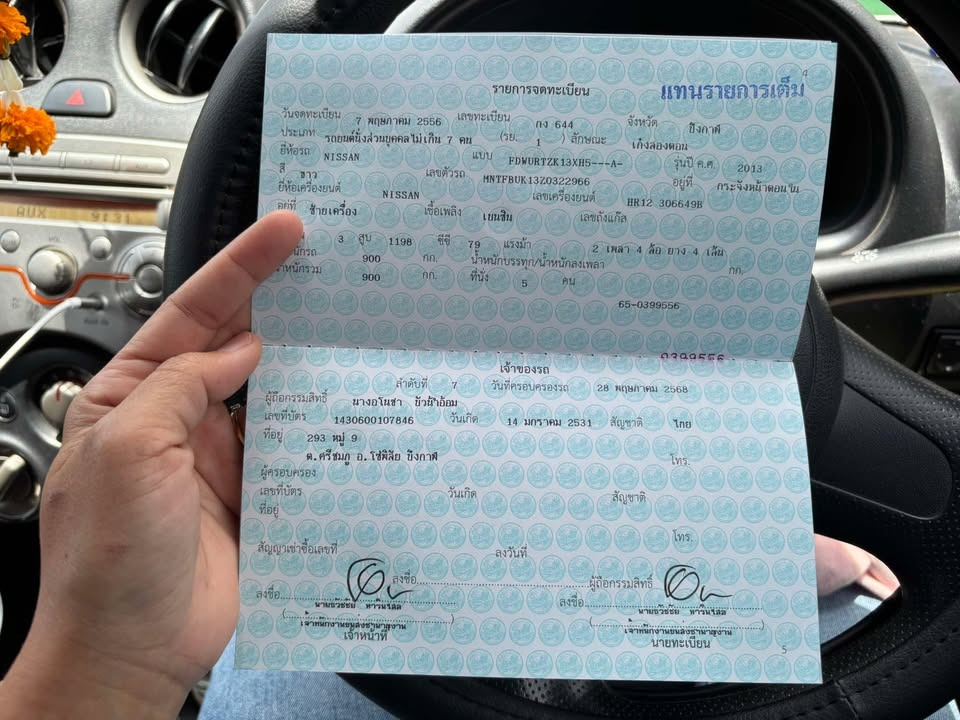 4
รายการจดทะเบียน
แทนรายการเต็ม
วันจดทะเบียน 7 พฤษภาคม 2556 เลขทะเบียน กง 644 จังหวัด บึงกาฬ
ประเภท รถยนต์นั่งส่วนบุคคลไม่เกิน 7 คน (รย. 1 ) ลักษณะ เก๋งสองตอน
ยี่ห้อรถ NISSAN แบบ FDWURTZK13XH5---A- รุ่นปี ค.ศ. 2013
สี ขาว เลขตัวรถ MNTFBUK13Z0322966 อยู่ที่ กระจังหน้าตอนใน
ยี่ห้อเครื่องยนต์ NISSAN เลขเครื่องยนต์ HR12 306649B
อยู่ที่ ซ้ายเครื่อง เชื้อเพลิง เบนซิน เลขถังแก๊ส
3 สูบ 1198 ซีซี 79 แรงม้า 2 เพลา 4 ล้อ ยาง 4 เส้น
900 กก. น้ำหนักบรรทุก/น้ำหนักลงเพลา กก.
น้ำหนักรวม 900 กก. ที่นั่ง 5 คน
65-0399556
0399556
เจ้าของรถ
ลำดับที่ 7 วันที่ครอบครองรถ 28 พฤษภาคม 2568
ผู้ถือกรรมสิทธิ์
เลขที่บัตร 1430600107846 วันเกิด 14 มกราคม 2531 สัญชาติ ไทย
ที่อยู่ 293 หมู่ 9
ต.ศรีชมภู อ.โซ่พิสัย บึงกาฬ โทร.
ผู้ครอบครอง
เลขที่บัตร วันเกิด สัญชาติ
ที่อยู่
โทร.
สัญญาเช่าซื้อเลขที่ ลงวันที่
ลงชื่อ ผู้ถือกรรมสิทธิ์
ลงชื่อ ลงชื่อ
นายธวัชชัย นายธวัชชัย
เจ้าพนักงานขนส่งชำนาญงาน เจ้าพนักงานขนส่งชำนาญงาน
เจ้าหน้าที่ นายทะเบียน
5
AUX 9:31